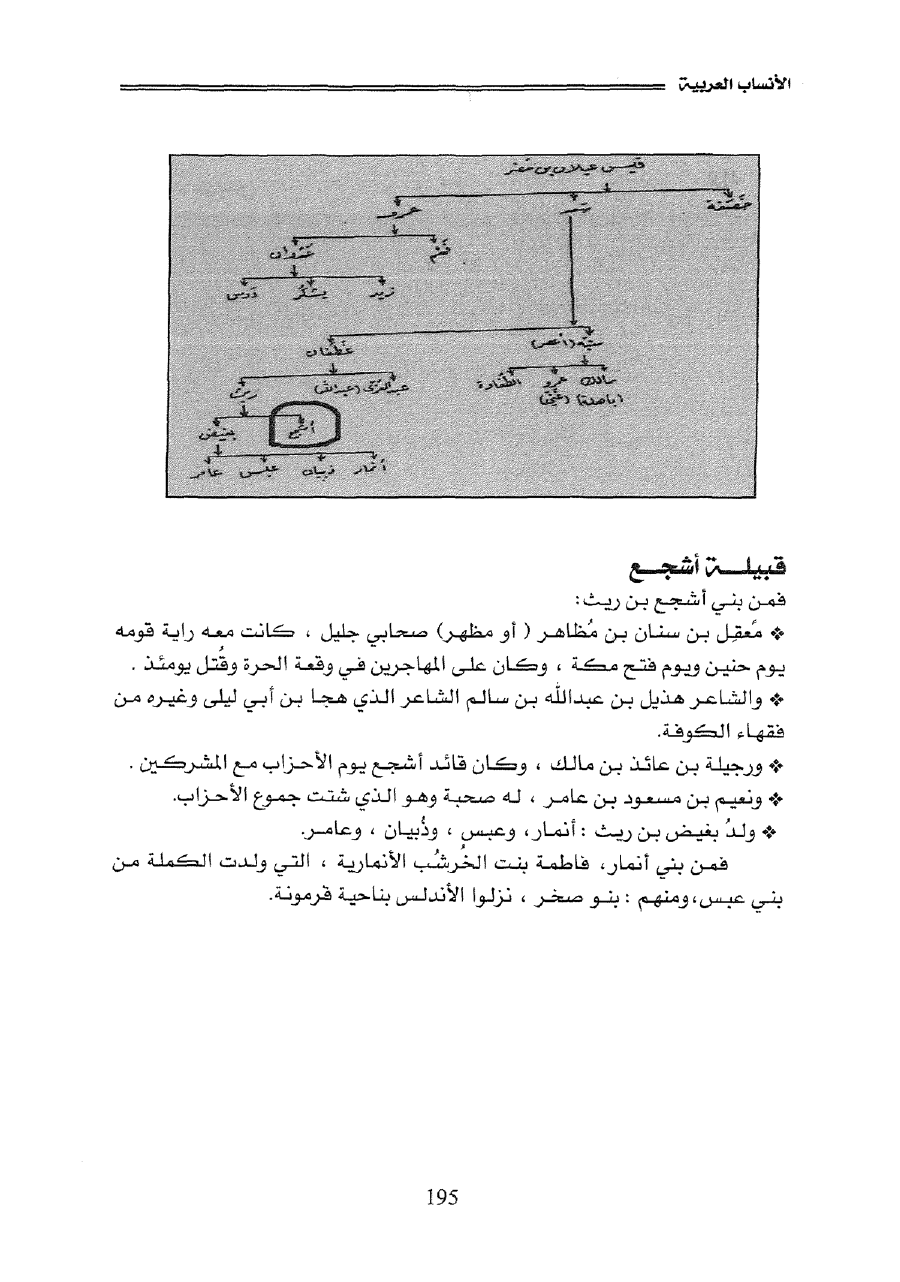 الأنساب العربية
قيس عيلان بن مضر
خصفة سعد عمرو
فهم عدوان
زيد يشكر دوس
منبه (أعصر) غطفان
مالك عمرو الطفاوة عبدالعزى (عبدالله) ريث
(باهلة) (غني)
أشجع بغيض
أنمار ذبيان عبس عامر
قبيلـــة أشجـــع
فمن بني أشجع بن ريث:
❖ مَعقِل بن سنان بن مُظاهر ( أو مظهر) صحابي جليل ، كانت معه راية قومه
يوم حنين ويوم فتح مكة ، وكان على المهاجرين في وقعة الحرة وقُتل يومئذ .
❖ والشاعر هذيل بن عبدالله بن سالم الشاعر الذي هجا بن أبي ليلى وغيره من
فقهاء الكوفة.
❖ ورجيلة بن عائذ بن مالك ، وكان قائد أشجع يوم الأحزاب مع المشركين .
❖ ونعيم بن مسعود بن عامر ، له صحبة وهو الذي شتت جموع الأحزاب.
❖ ولدُ بغيض بن ريث : أنمار، وعبس ، وذُبيان ، وعامر.
فمن بني أنمار، فاطمة بنت الخُرشُب الأنمارية ، التي ولدت الكملة من
بني عبس،ومنهم : بنو صخر ، نزلوا الأندلس بناحية قرمونة.
195